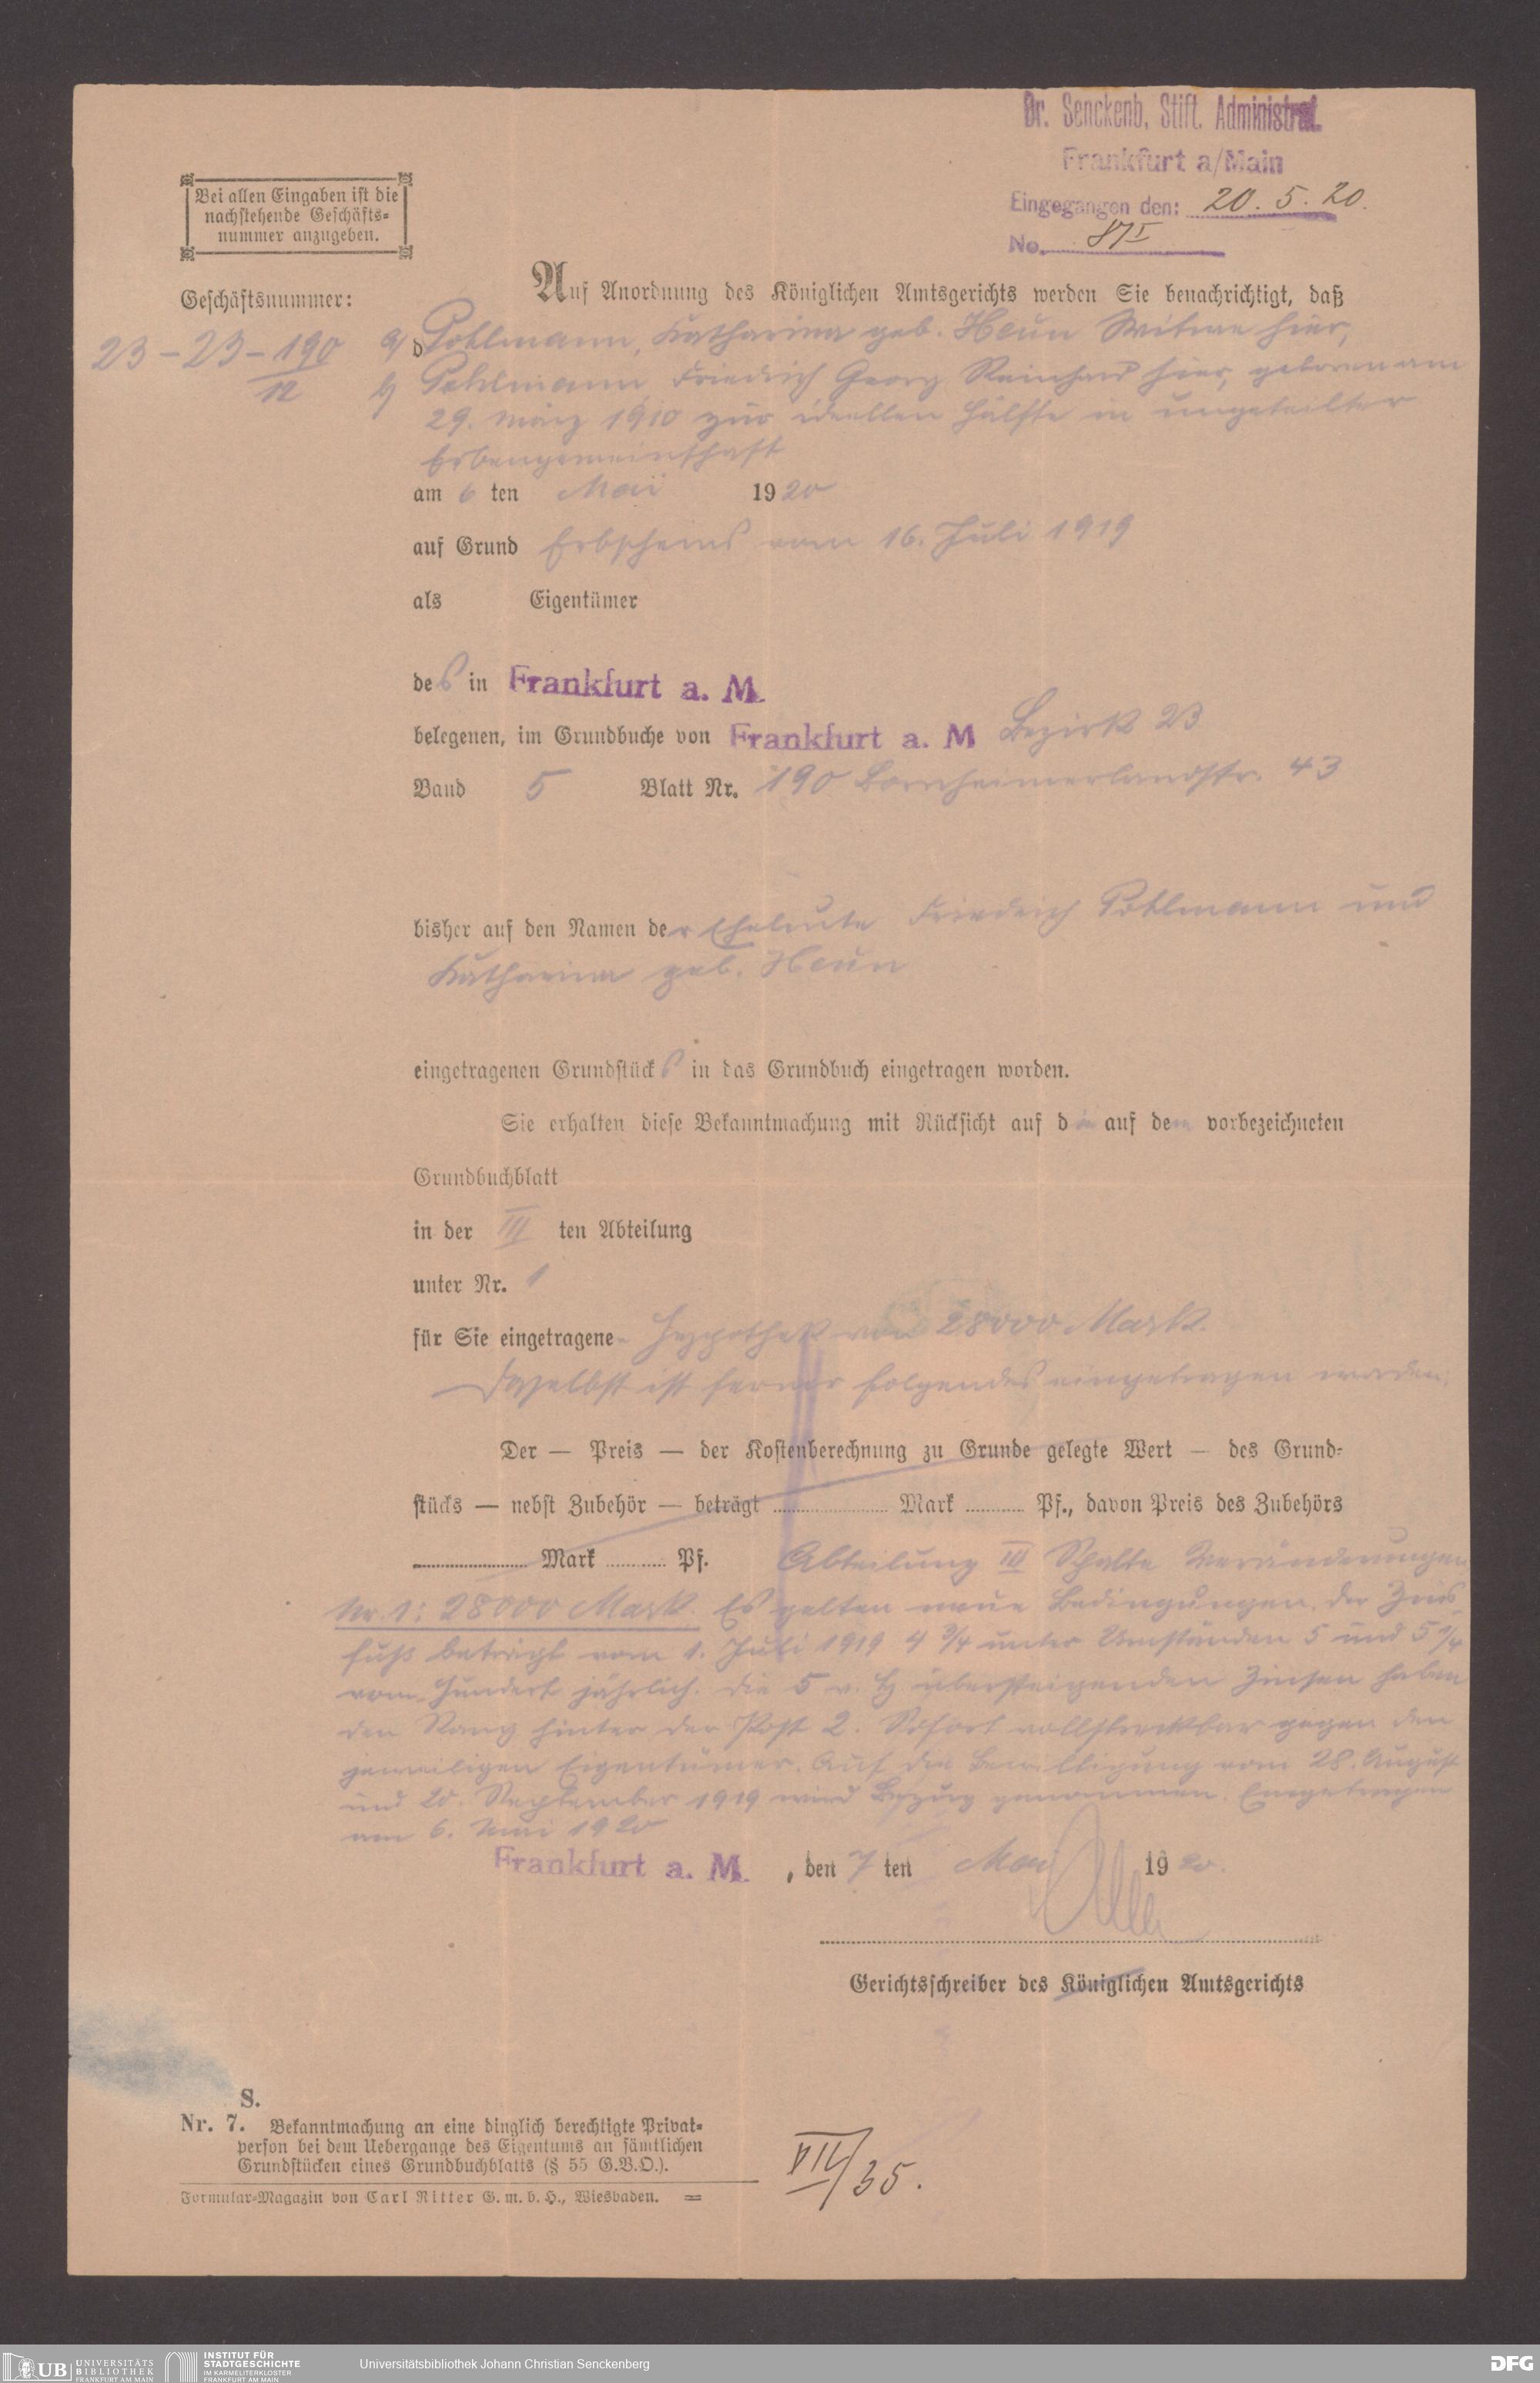 Dr. Senckenb. Stift. Administrat.
Frankfurt a/Main
Eingegangen den: 20. 5. 20.
No. 87 I
Bei allen Eingaben ist die
nachstehende Geschäfts-
nummer anzugeben.
Geschäftsnummer:
23-23-190
12
Auf Anordnung des Königlichen Amtsgerichts werden Sie benachrichtigt, daß
d
a) Pohlmann, Katharina geb. Heun Witwe hier,
b) Pohlmann Friedrich Georg Reinhard hier, geboren am
29. März 1910 zur ideellen Hälfte in ungeteilter
Erbengemeinschaft
am 6 ten Mai 1920
auf Grund Erbscheins vom 16. Juli 1919
als Eigentümer
des in Frankfurt a. M.
belegenen, im Grundbuche von Frankfurt a. M Bezirk 23
Band 5 Blatt Nr. 190 Bornheimerlandstr. 43
bisher auf den Namen der Eheleute Friedrich Pohlmann und
Katharina geb. Heun
eingetragenen Grundstücks in das Grundbuch eingetragen worden.
Sie erhalten diese Bekanntmachung mit Rücksicht auf die auf dem vorbezeichneten
Grundbuchblatt
in der III ten Abteilung
unter Nr. 1
für Sie eingetragene Hypothek von 28000 Mark.
Daselbst ist ferner folgendes eingetragen worden:
Der — Preis — der Kostenberechnung zu Grunde gelegte Wert — des Grund-
stücks — nebst Zubehör — beträgt Mark Pf., davon Preis des Zubehörs
Mark Pf. Abteilung III Spalte Veränderungen
Nr. 1: 28000 Mark. Es gelten neue Bedingungen. Der Zins-
fuß beträgt vom 1. Juli 1919 4 3/4 unter Umständen 5 und 5 1/4
vom Hundert jährlich. Die 5 v. H übersteigenden Zinsen haben
den Rang hinter der Post 2. Sofort vollstreckbar gegen den
jeweiligen Eigentümer. Auf die Bewilligung vom 28. August
und 20. September 1919 wird Bezug genommen. Eingetragen
am 6. Mai 1920
Frankfurt a. M. , den 7 ten Mai 1920.
Gerichtsschreiber des Königlichen Amtsgerichts
S.
Nr. 7. Bekanntmachung an eine dinglich berechtigte Privat-
person bei dem Uebergange des Eigentums an sämtlichen
Grundstücken eines Grundbuchblatts (§ 55 G.B.O.).
Formular-Magazin von Carl Ritter G. m. b. H., Wiesbaden.
VII/35.
UB UNIVERSITÄTS
BIBLIOTHEK
FRANKFURT AM MAIN
INSTITUT FÜR
STADTGESCHICHTE
IM KARMELITERKLOSTER
FRANKFURT AM MAIN
Universitätsbibliothek Johann Christian Senckenberg
DFG